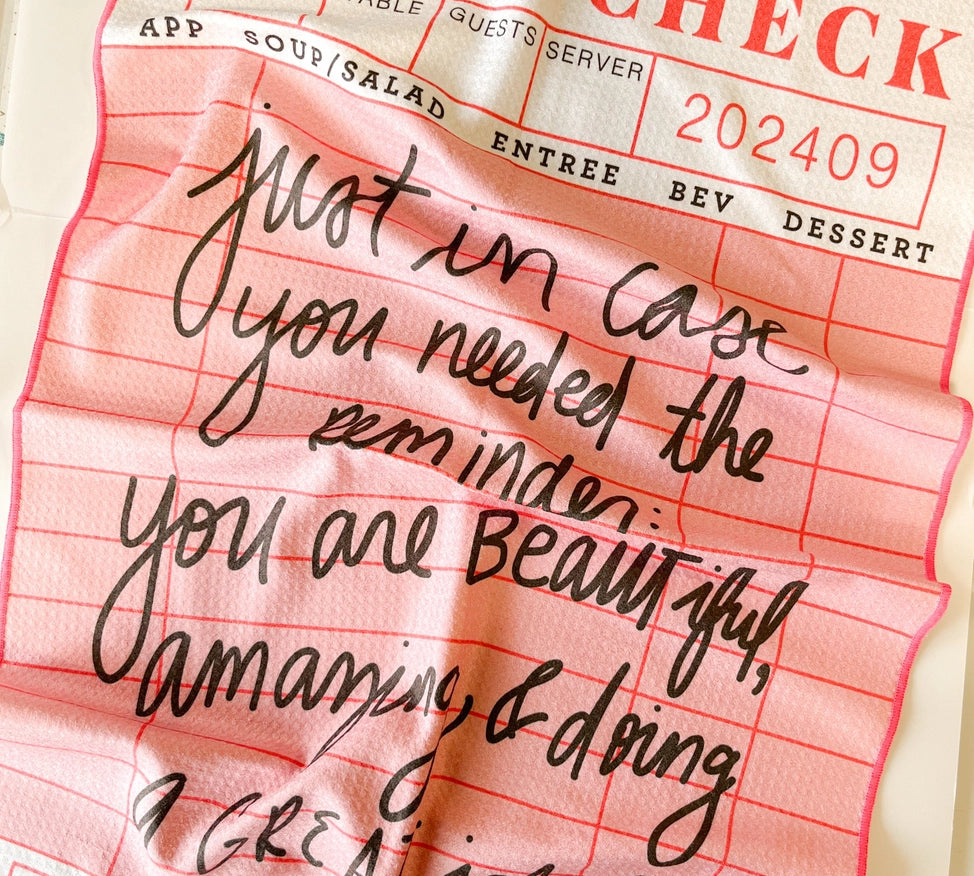 CHECK
TABLE GUESTS SERVER
202409
APP SOUP/SALAD ENTREE BEV DESSERT
just in case
you needed the
reminder:
you are BEAUTiful,
amazing, & doing
a GREAT